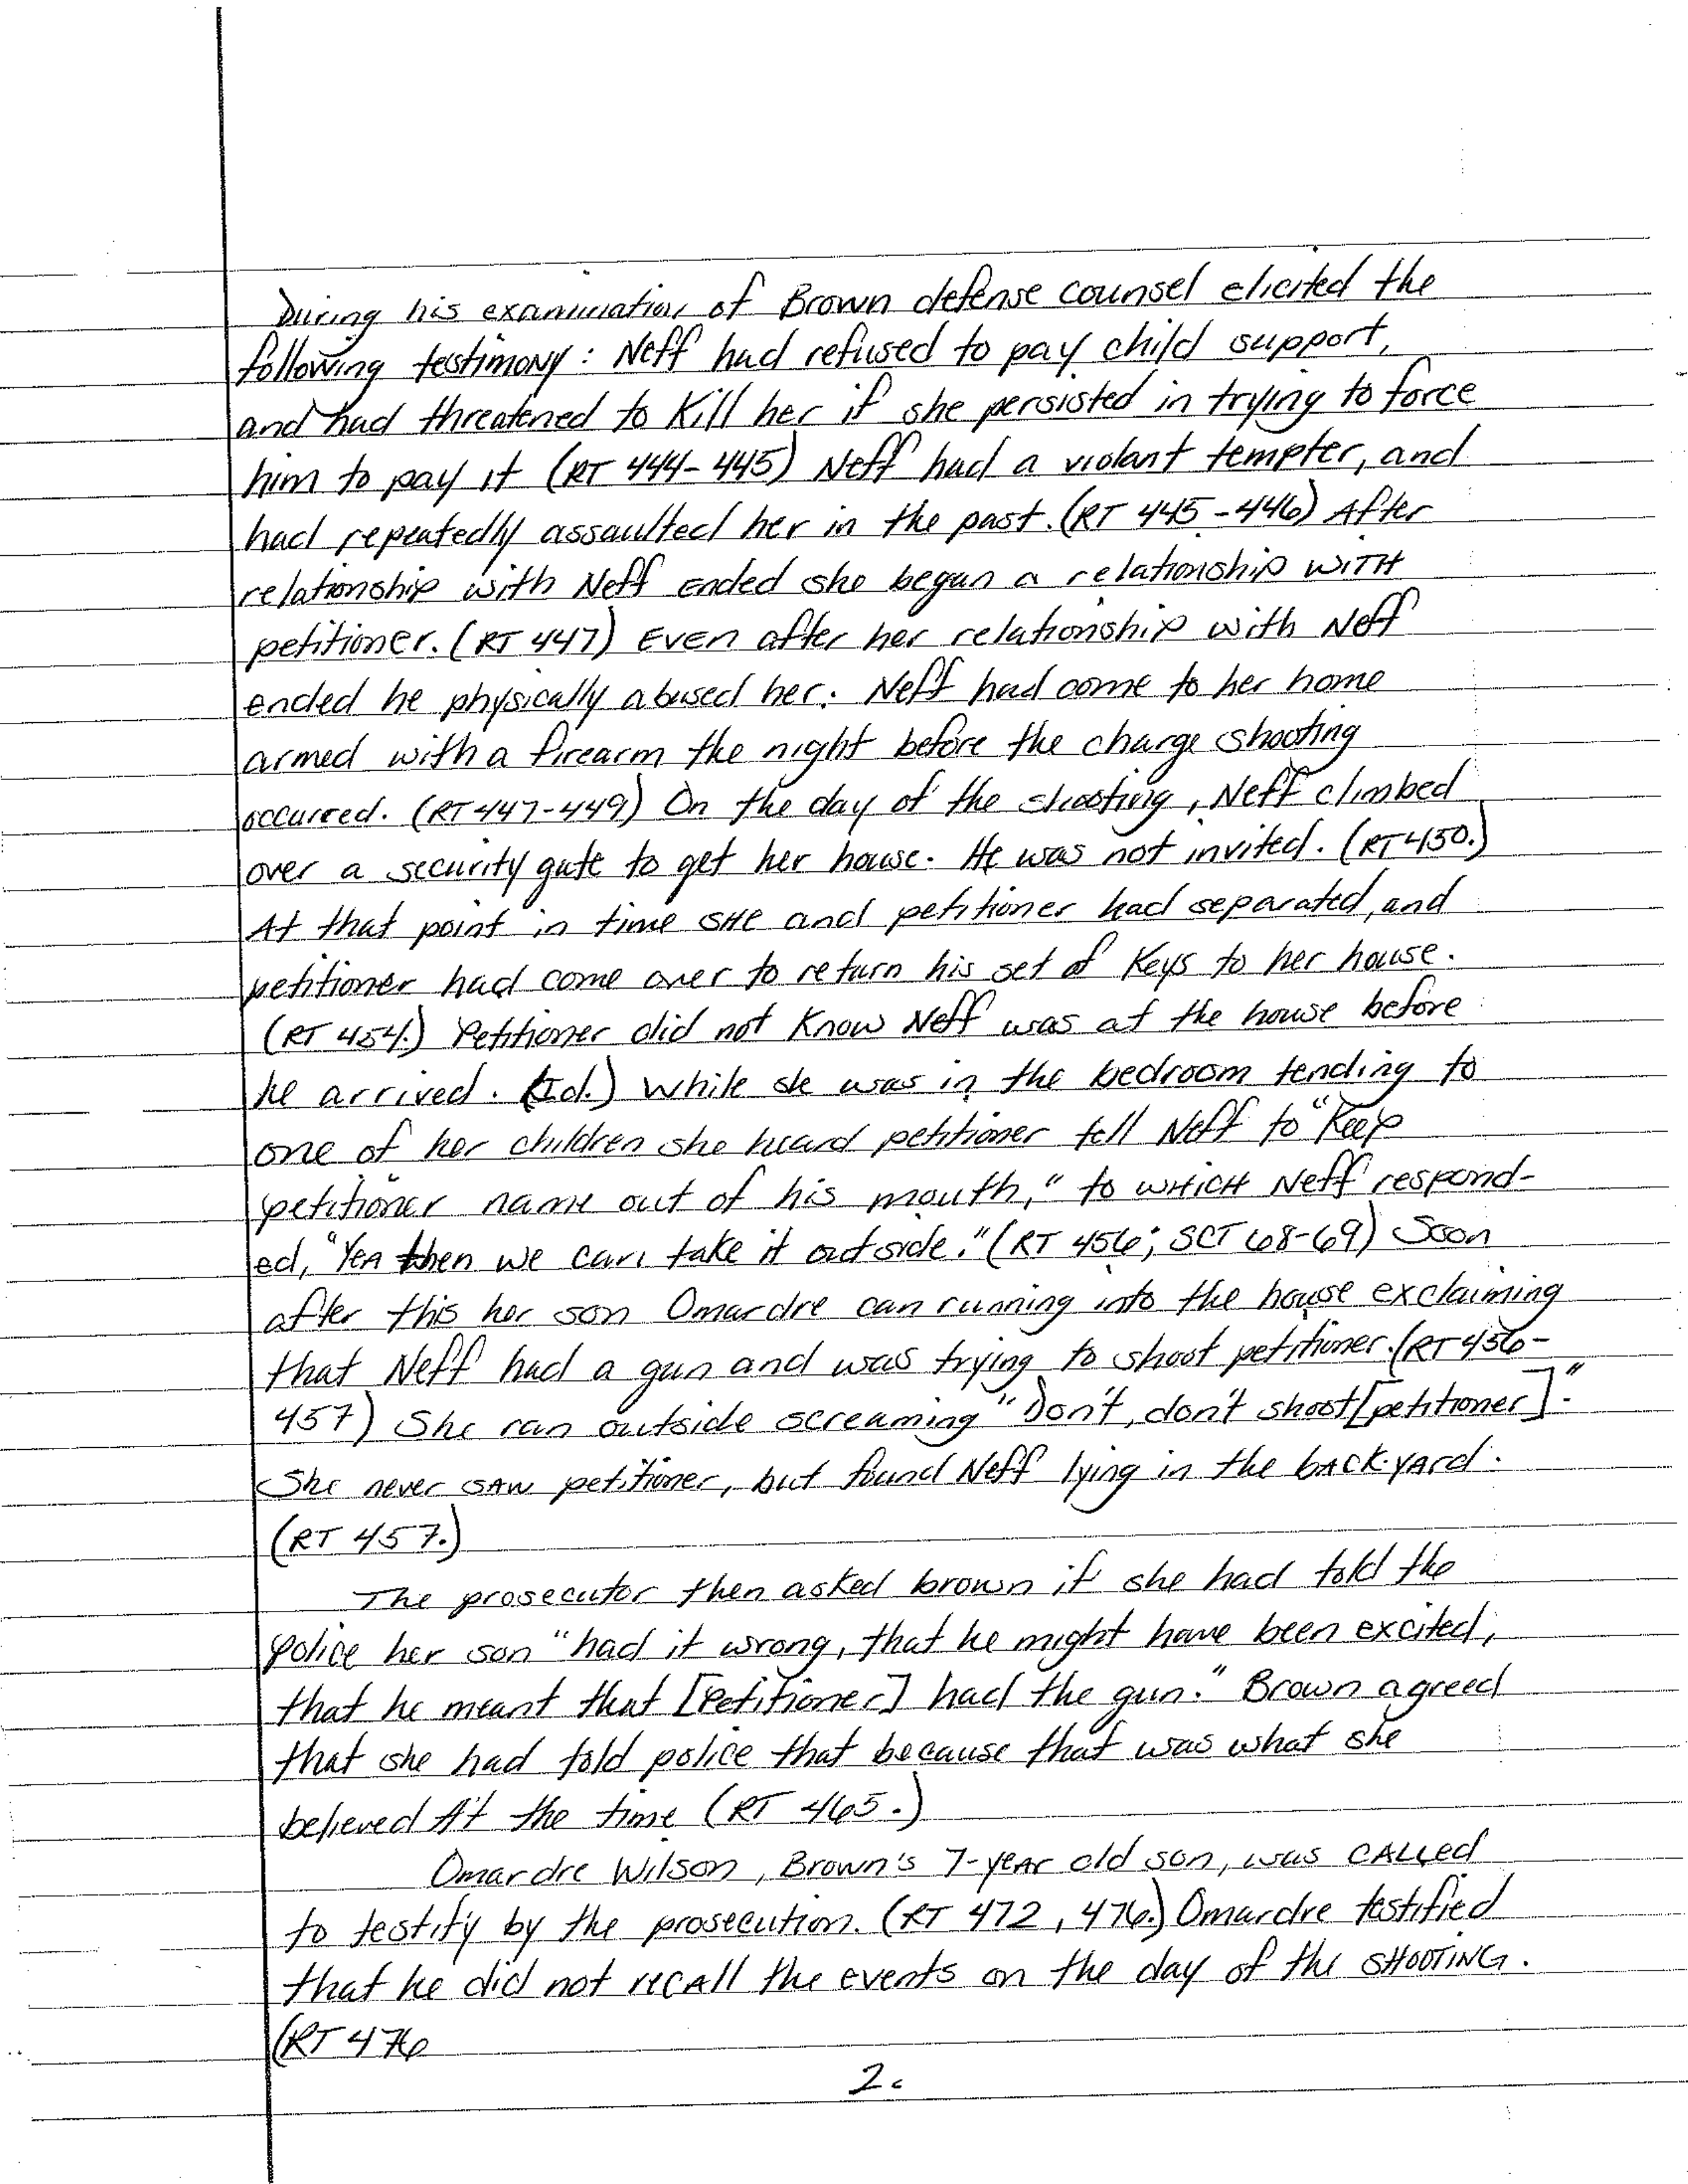 During his examination of Brown defense counsel elicited the
following testimony: Neff had refused to pay child support,
and had threatened to Kill her if she persisted in trying to force
him to pay it (RT 444-445) Neff had a violant tempter, and
had repeatedly assaulted her in the past. (RT 445-446) After
relationship with Neff ended she began a relationship WITH
petitioner. (RT 447) Even after her relationship with Neff
ended he physically abused her. Neff had come to her home
armed with a firearm the night before the charge shooting
occurred. (RT 447-449) On the day of the shooting, Neff climbed
over a security gate to get her house. He was not invited. (RT 450.)
At that point in time SHE and petitioner had separated, and
petitioner had come over to return his set of Keys to her house.
(RT 454.) Petitioner did not Know Neff was at the house before
he arrived. (Id.) While she was in the bedroom tending to
one of her children she heard petitioner tell Neff to "Keep
petitioner name out of his mouth," to WHICH Neff respond-
ed, "YEA then we can take it outside." (RT 456; SCT 68-69) Soon
after this her son Omardre can running into the house exclaiming
that Neff had a gun and was trying to shoot petitioner. (RT 456-
457) She ran outside screaming "Don't, don't shoot [petitioner]."
She never SAW petitioner, but found Neff lying in the BACK-YARD.
(RT 457.)
The prosecutor then asked brown if she had told the
police her son "had it wrong, that he might have been excited,
that he meant that [Petitioner] had the gun." Brown agreed
that she had told police that because that was what she
believed At the time (RT 465.)
Omardre Wilson, Brown's 7-yEAr old son, was CALLED
to testify by the prosecution. (RT 472, 476.) Omardre testified
that he did not recALL the events on the day of the SHOOTING.
(RT 476
2.